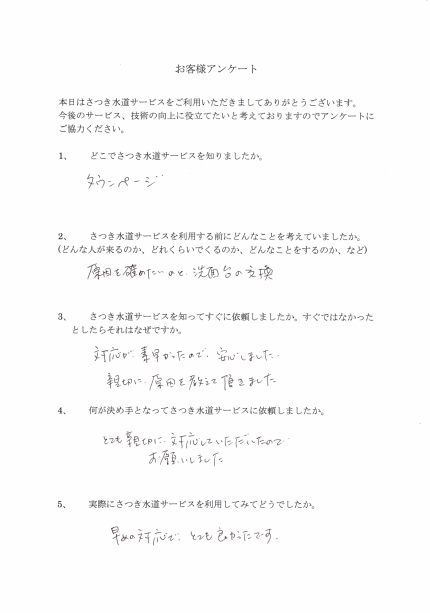 お客様アンケート
本日はさつき水道サービスをご利用いただきましてありがとうございます。
今後のサービス、技術の向上に役立てたいと考えておりますのでアンケートに
ご協力ください。
1、 どこでさつき水道サービスを知りましたか。
タウンページ
2、 さつき水道サービスを利用する前にどんなことを考えていましたか。
(どんな人が来るのか、どれくらいでくるのか、どんなことをするのか、など)
原因を確めたいのと、洗面台の交換
3、 さつき水道サービスを知ってすぐに依頼しましたか。すぐではなかった
としたらそれはなぜですか。
対応が、素早かったので、安心しました。
親切に、原因を教えて頂きました
4、 何が決め手となってさつき水道サービスに依頼しましたか。
とても親切に、対応していただいたので
お願いしました
5、 実際にさつき水道サービスを利用してみてどうでしたか。
早めの対応で、とても良かったです。